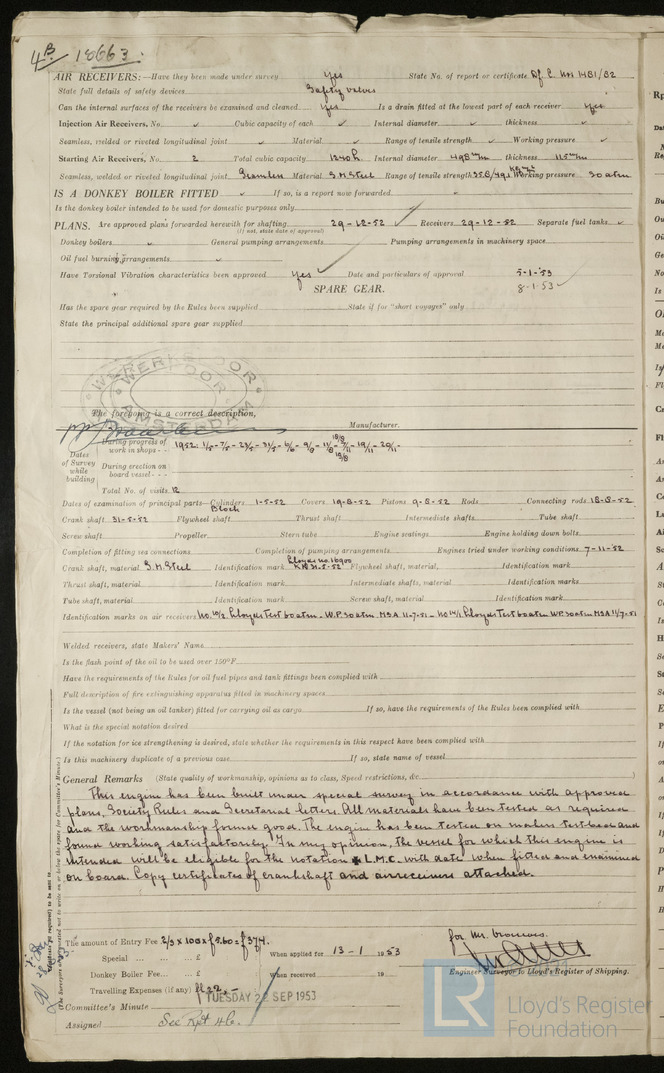 4B 18663.
AIR RECEIVERS:—Have they been made under survey Yes State No. of report or certificate
State full details of safety devices Safety valves
Can the internal surfaces of the receivers be examined and cleaned Yes Is a drain fitted at the lowest part of each receiver Yes
Injection Air Receivers, No. Cubic capacity of each Internal diameter thickness
Seamless, welded or riveted longitudinal joint Material Range of tensile strength Working pressure
Starting Air Receivers, No. 2 Total cubic capacity Internal diameter 498 m/m thickness
Seamless, welded or riveted longitudinal joint Seamless Material S.M.Steel Range of tensile strength Working pressure 30 atm
IS A DONKEY BOILER FITTED If so, is a report now forwarded
Is the donkey boiler intended to be used for domestic purposes only
PLANS. Are approved plans forwarded herewith for shafting 29-12-52 Receivers 29-12-52 Separate fuel tanks
(If not, state date of approval)
Donkey boilers General pumping arrangements Pumping arrangements in machinery space
Oil fuel burning arrangements
Have Torsional Vibration characteristics been approved Yes Date and particulars of approval 5-1-53
SPARE GEAR. 8-1-53
Has the spare gear required by the Rules been supplied State if for "short voyages" only
State the principal additional spare gear supplied
WERKSPOOR
WERKSPOOR
AMSTERDAM
The foregoing is a correct description,
Manufacturer.
Dates of Survey while building
During progress of work in shops - - 1952
During erection on board vessel - - -
Total No. of visits 12
Dates of examination of principal parts—Cylinders 1-5-52 Covers 19-8-52 Pistons 9-8-52 Rods Connecting rods 18-8-52
Block
Crank shaft 31-5-52 Flywheel shaft Thrust shaft Intermediate shafts Tube shaft
Screw shaft Propeller Stern tube Engine seatings Engine holding down bolts
Completion of fitting sea connections Completion of pumping arrangements Engines tried under working conditions 7-11-52
Crank shaft, material S.M Steel Identification mark Lloyds no. 10900 31-5-52 Flywheel shaft, material, Identification mark
Thrust shaft, material Identification mark Intermediate shafts, material Identification marks
Tube shaft, material Identification mark Screw shaft, material Identification mark
Identification marks on air receivers No. 10/2 Lloyds Test 60 atm. W.P. 30 atm MSA 11-7-51 - No 14/1 Lloyds Test 60 atm WP 30 atm MSA 11/7-51
Welded receivers, state Makers' Name
Is the flash point of the oil to be used over 150°F.
Have the requirements of the Rules for oil fuel pipes and tank fittings been complied with
Full description of fire extinguishing apparatus fitted in machinery spaces
Is the vessel (not being an oil tanker) fitted for carrying oil as cargo If so, have the requirements of the Rules been complied with
What is the special notation desired
If the notation for ice strengthening is desired, state whether the requirements in this respect have been complied with
Is this machinery duplicate of a previous case If so, state name of vessel
General Remarks (State quality of workmanship, opinions as to class, Speed restrictions, &c.)
This engine has been built under special survey in accordance with approved
plans, Society Rules and Secretarial letters. All materials have been tested as required
and the workmanship found good. The engine has been tested on makers testbed and
found working satisfactorily. In my opinion, the vessel for which this engine is
intended will be eligible for the notation ✠ L.M.C. with date when fitted and examined
on board. Copy certificates of crankshaft and airreceivers attached.
The amount of Entry Fee 2/3 x 100 x £5.60 = £374.
Special ... ... ... £ When applied for 13-1 1953
Donkey Boiler Fee... ... £ When received 19
Travelling Expenses (if any) £
TUESDAY 22 SEP 1953
Engineer Surveyor to Lloyd's Register of Shipping.
Committee's Minute
Assigned See Rpt 4b.
(The Surveyors are requested not to write on or below the space for Committee's Minute.)
LR
Lloyd's Register
Foundation